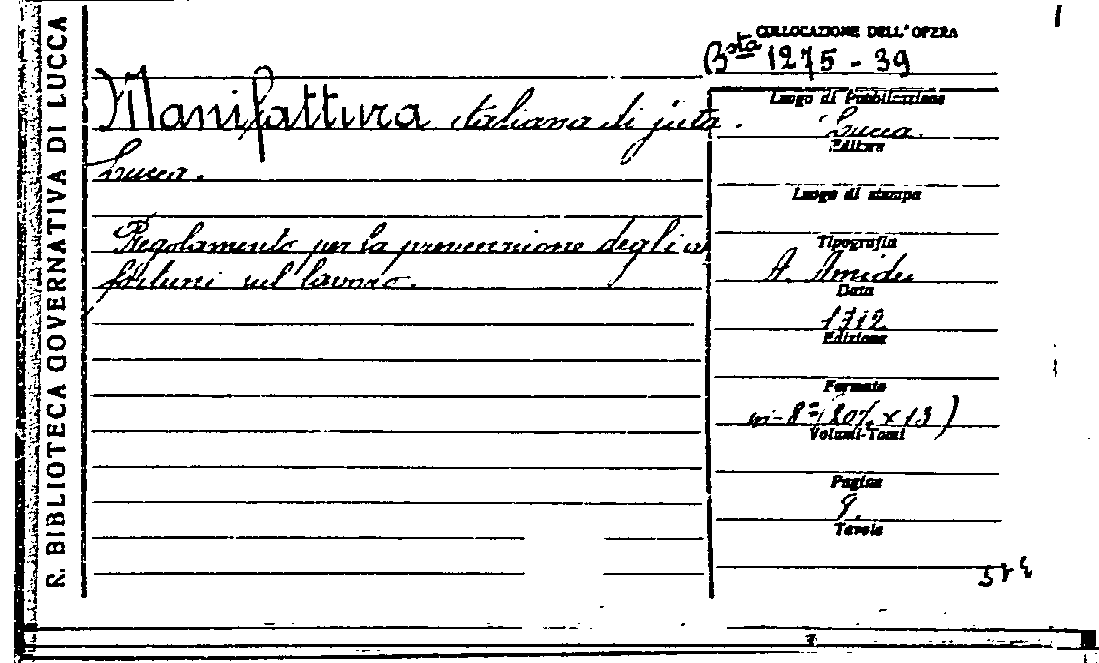 R. BIBLIOTECA GOVERNATIVA DI LUCCA
COLLOCAZIONE DELL'OPERA
Bsta 1275 - 39
Manifattura italiana di juta.
Lucca.
Regolamento per la prevenzione degli in
fortuni sul lavoro.
Luogo di Pubblicazione
Lucca.
Editore
Luogo di stampa
Tipografia
A. Amidei
Data
1912
Edizione
Formato
in-8° (20½ x 13)
Volumi-Tomi
Pagine
9.
Tavole